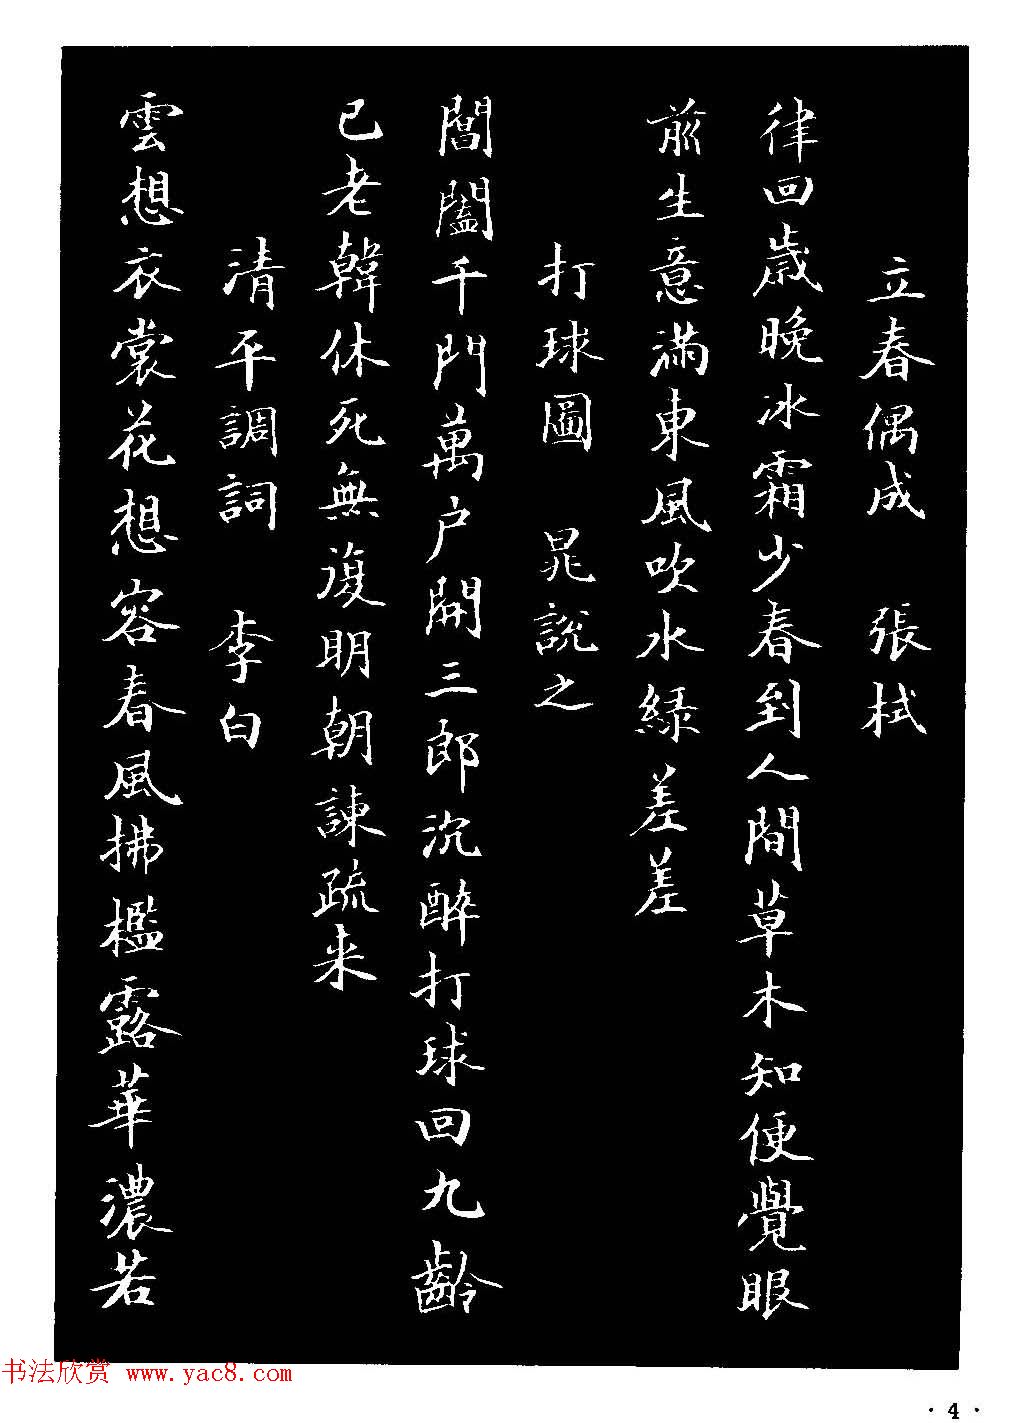 立春偶成 張栻
律回歲晚冰霜少春到人間草木知便覺眼
前生意滿東風吹水綠差差
打球圖 晁說之
閶闔千門萬户開三郎沉醉打球回九齡
已老韓休死無復明朝諫疏来
清平調詞 李白
雲想衣裳花想容春風拂檻露華濃若
书法欣赏 www.yac8.com
· 4 ·